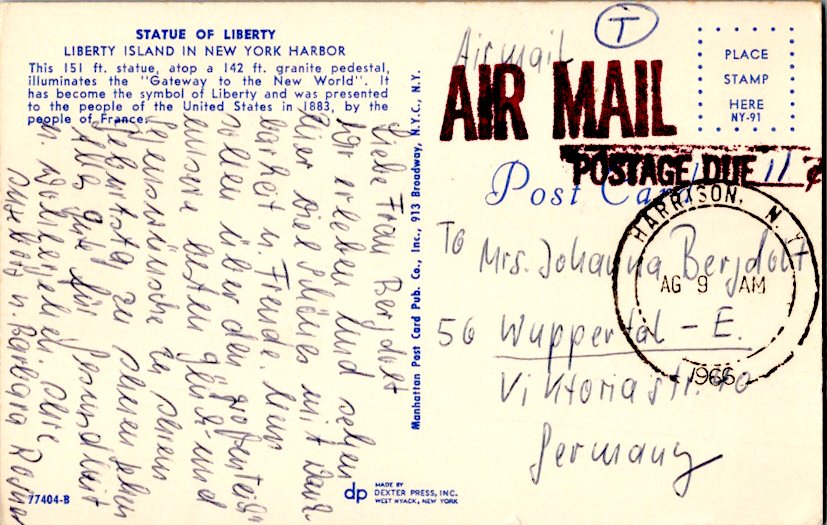 STATUE OF LIBERTY
LIBERTY ISLAND IN NEW YORK HARBOR
This 151 ft. statue, atop a 142 ft. granite pedestal,
illuminates the "Gateway to the New World". It
has become the symbol of Liberty and was presented
to the people of the United States in 1883, by the
people of France.
Liebe Frau Bergdolt
Wir erleben und sehen
hier viel Schönes mit Dank-
barkeit u. Freude. Nun
sollen über den
unsere besten Glück- und
Segenswünsche zu Ihrem
Geburtstag zu Ihnen
Alles Gute für Gesundheit
u. Wohlergehen. Ihre
u. Barbara
77404-B
Manhattan Post Card Pub. Co., Inc., 913 Broadway, N.Y.C., N.Y.
dp
MADE BY
DEXTER PRESS, INC.
WEST NYACK, NEW YORK
T
Airmail
AIR MAIL
PLACE
STAMP
HERE
NY-91
POSTAGE DUE 11 ¢
Post Card
HARRISON, N.Y.
AG 9 AM
1966
To Mrs. Johanna Bergdolt
56 Wuppertal - E.
Viktoriastr. 70
Germany